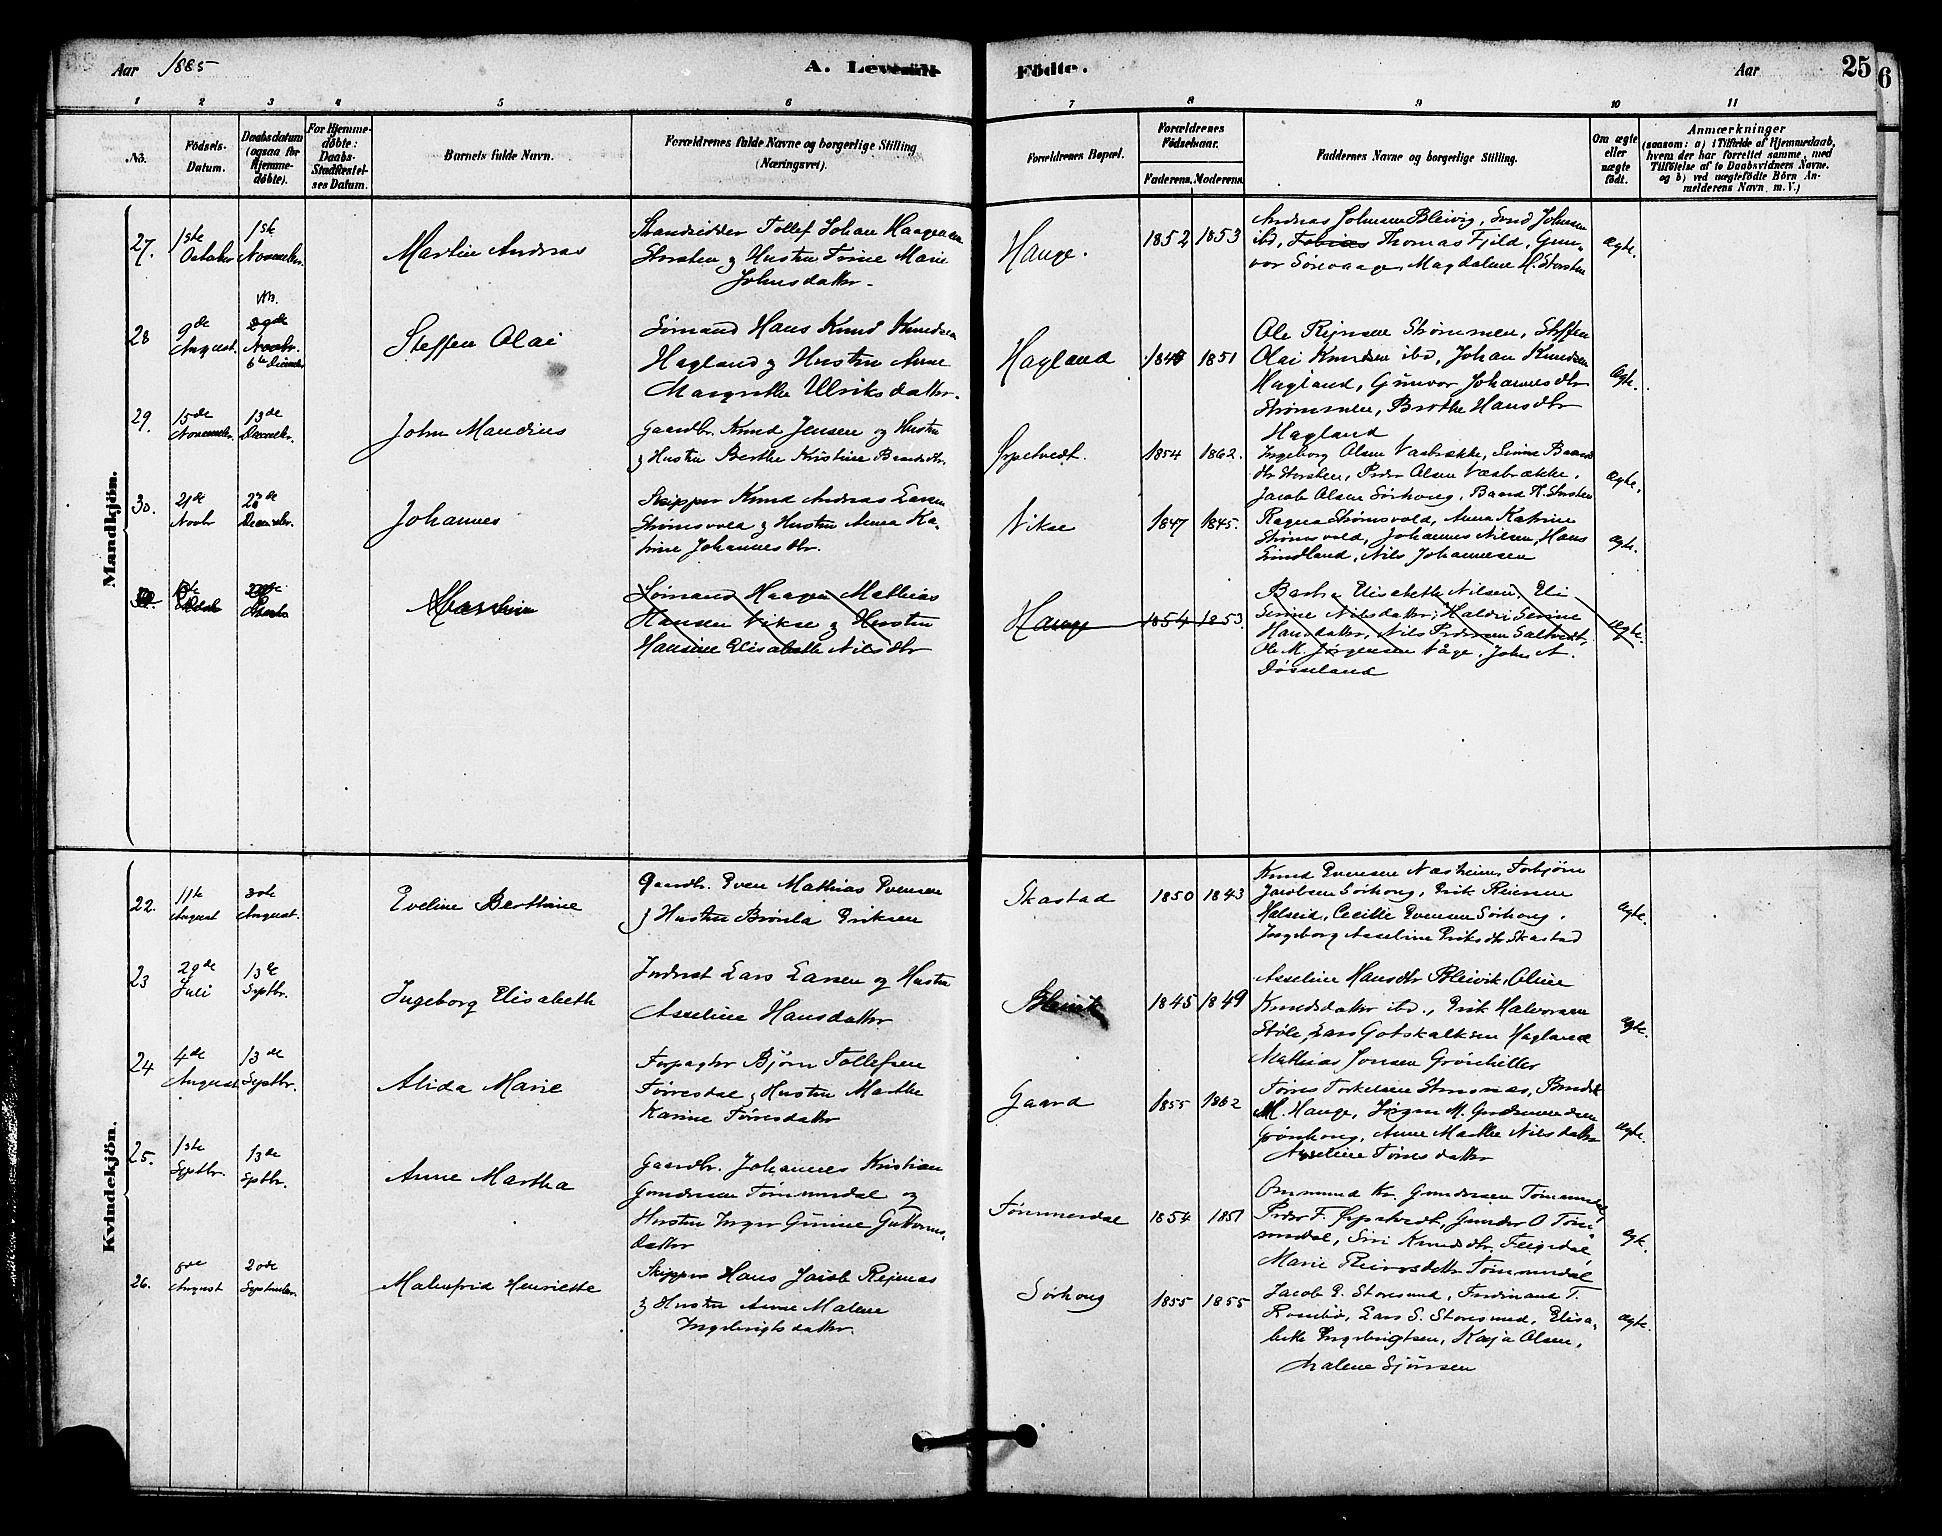 Aar 1885
A. Levende Födte.
Aar
25
6
1 2 3 4 5 6 7 8 9 10 11
No.
Födsels-
Datum.
Daabsdatum
(ogsaa for
Hjemme-
döbte).
For Hjemme-
döbte:
Daabs-
Stadfæstel-
ses Datum.
Barnets fulde Navn.
Forældrenes fulde Navne og borgerlige Stilling
(Næringsvei).
Forældrenes Bopæl.
Forældrenes
Födselsaar.
Faderens. Moderens.
Faddernes Navne og borgerlige Stilling.
Om ægte
eller
uægte
födt.
Anmærkninger
(saasom: a) i Tilfælde af Hjemmedaab,
hvem der har forrettet samme, med
Tilföielse af to Daabsvidners Navne,
og b) ved uægtefödte Börn An-
melderens Navn, m. V.)
Mandkjön.
27.
1ste
October
1ste
November.
Martin Andreas
Strandsidder Tollef Johan Haagensen
Storsten & Hustru Trine Marie
Johnsdatter.
Hauge.
1852 1853
Andreas Johnsen Bleivig, Svend Johnsen
ibd, Tobias Thomas Fjeld, Gun-
vor Sörevaage, Magdalene H. Storsten
Ægte.
28
9de
August.
29de
Novbr.
6te December
Steffen Olai
Sømand Hans Knud Knudsen
Hagland & Hustru Anne
Margrethe Ulriksdatter.
Hagland
1845 1851
Ole Rejnsen Strømmen, Steffen
Olai Knudsen ibd, Johan Knudsen
Hagland, Gunvor Johannesdtr
Strømmen, Berthe Hansdtr
Hagland
Ægte.
29.
15de
November.
13de
December.
John Mandius
Gaardbr. Knud Jensen og Hustru
& Hustru Berthe Kristine Baardsdtr.
Ørpetvedt.
1854 1862.
Ingeborg Olsen Vasbrække, Serine Baards
dtr Storsten, Peder Olsen Vasbrække,
Jacob Olsen Sörhoug, Baard H. Storsten
Ægte.
30.
21de
Novbr
26de
December.
Johannes
Skipper Knud Andreas Larsen
Strømsvold & Hustru Anna Ka-
trine Johannesdtr.
Vikse
1847 1845.
Ragna Strømsvold, Anna Katrine
Strømsvold, Johannes Nilsen, Hans
Sundland, Nils Johannesen
Ægte.
Martin
Sømand Haagen Mathias
Hansen Vikse & Hustru
Hansine Elisabeth Nilsdtr
Hauge
1854 1853.
Barbra Elisabeth Nilsen, Eli
Serine Nilsdatter, Haldri Serine
Hansdatter, Nils Pedersen Saltvedt,
Ole M. Jørgensen Våge, John A.
Døsseland
Ægte.
Kvindekjön.
22.
11te
August
30te
August.
Eveline Berthine
Gaardbr. Even Mathias Evensen
& Hustru Brönla Eriksen
Skastad
1850 1843
Knud Evensen Næsheim, Torbjørn
Jacobsen Sörhoug, Erik Reiersen
Halseid, Cecilie Evensen Sörhoug,
Ingeborg Asseline Eriksdtr Skastad
Ægte.
23
29de
Juli
13de
Septbr.
Ingeborg Elisabeth
Inderst Lars Larsen og Hustru
Asseline Hansdatter
Bleivik
1845 1849
Asseline Hansdtr Bleivik, Oline
Knudsdatter ibd., Erik Halvorsen
Støle, Lars Gotskalksen Hagland
Mathias Jonsen Grönhiller
Ægte.
24
4de
August
13de
Septbr.
Alida Marie
Forpagter Bjørn Tollefsen
Tørresdal & Hustru Marthe
Karine Tørresdatter
Gaard
1855 1862
Tørres Torkelsen Stensnæs,
M. Hauge, Jørgen M.
Grönhoug, Anne Marthe Nilsdatter
Asseline Tørresdatter
Ægte.
25.
1ste
Septbr.
13de
Sptbr.
Anne Martha
Gaardbr. Johannes Kristian
Gundersen Tømmerdal og
Hustru Inger Gurine Guttorms-
datter
Tømmerdal
1854 1851
Ommund Kr. Gundersen Tømmerdal,
Peder F. Ørpetvedt, Gunder O Töm-
merdal, Siri Knudsdtr.
Marie Reiersdtr Tømmerdal
Ægte.
26.
8de
August
20de
September.
Malenfrid Henriette
Skipper Hans Jacob Rejnas
& Hustru Anne Malene
Ingebrigtsdatter.
Sörhoug
1855 1855
Jacob E. Storesund, Ferdinand T.
Rossebø, Lars S. Storesund, Elisa-
beth Ingebrigtsen, Kaja Olsen,
Malene Sjursen
Ægte.